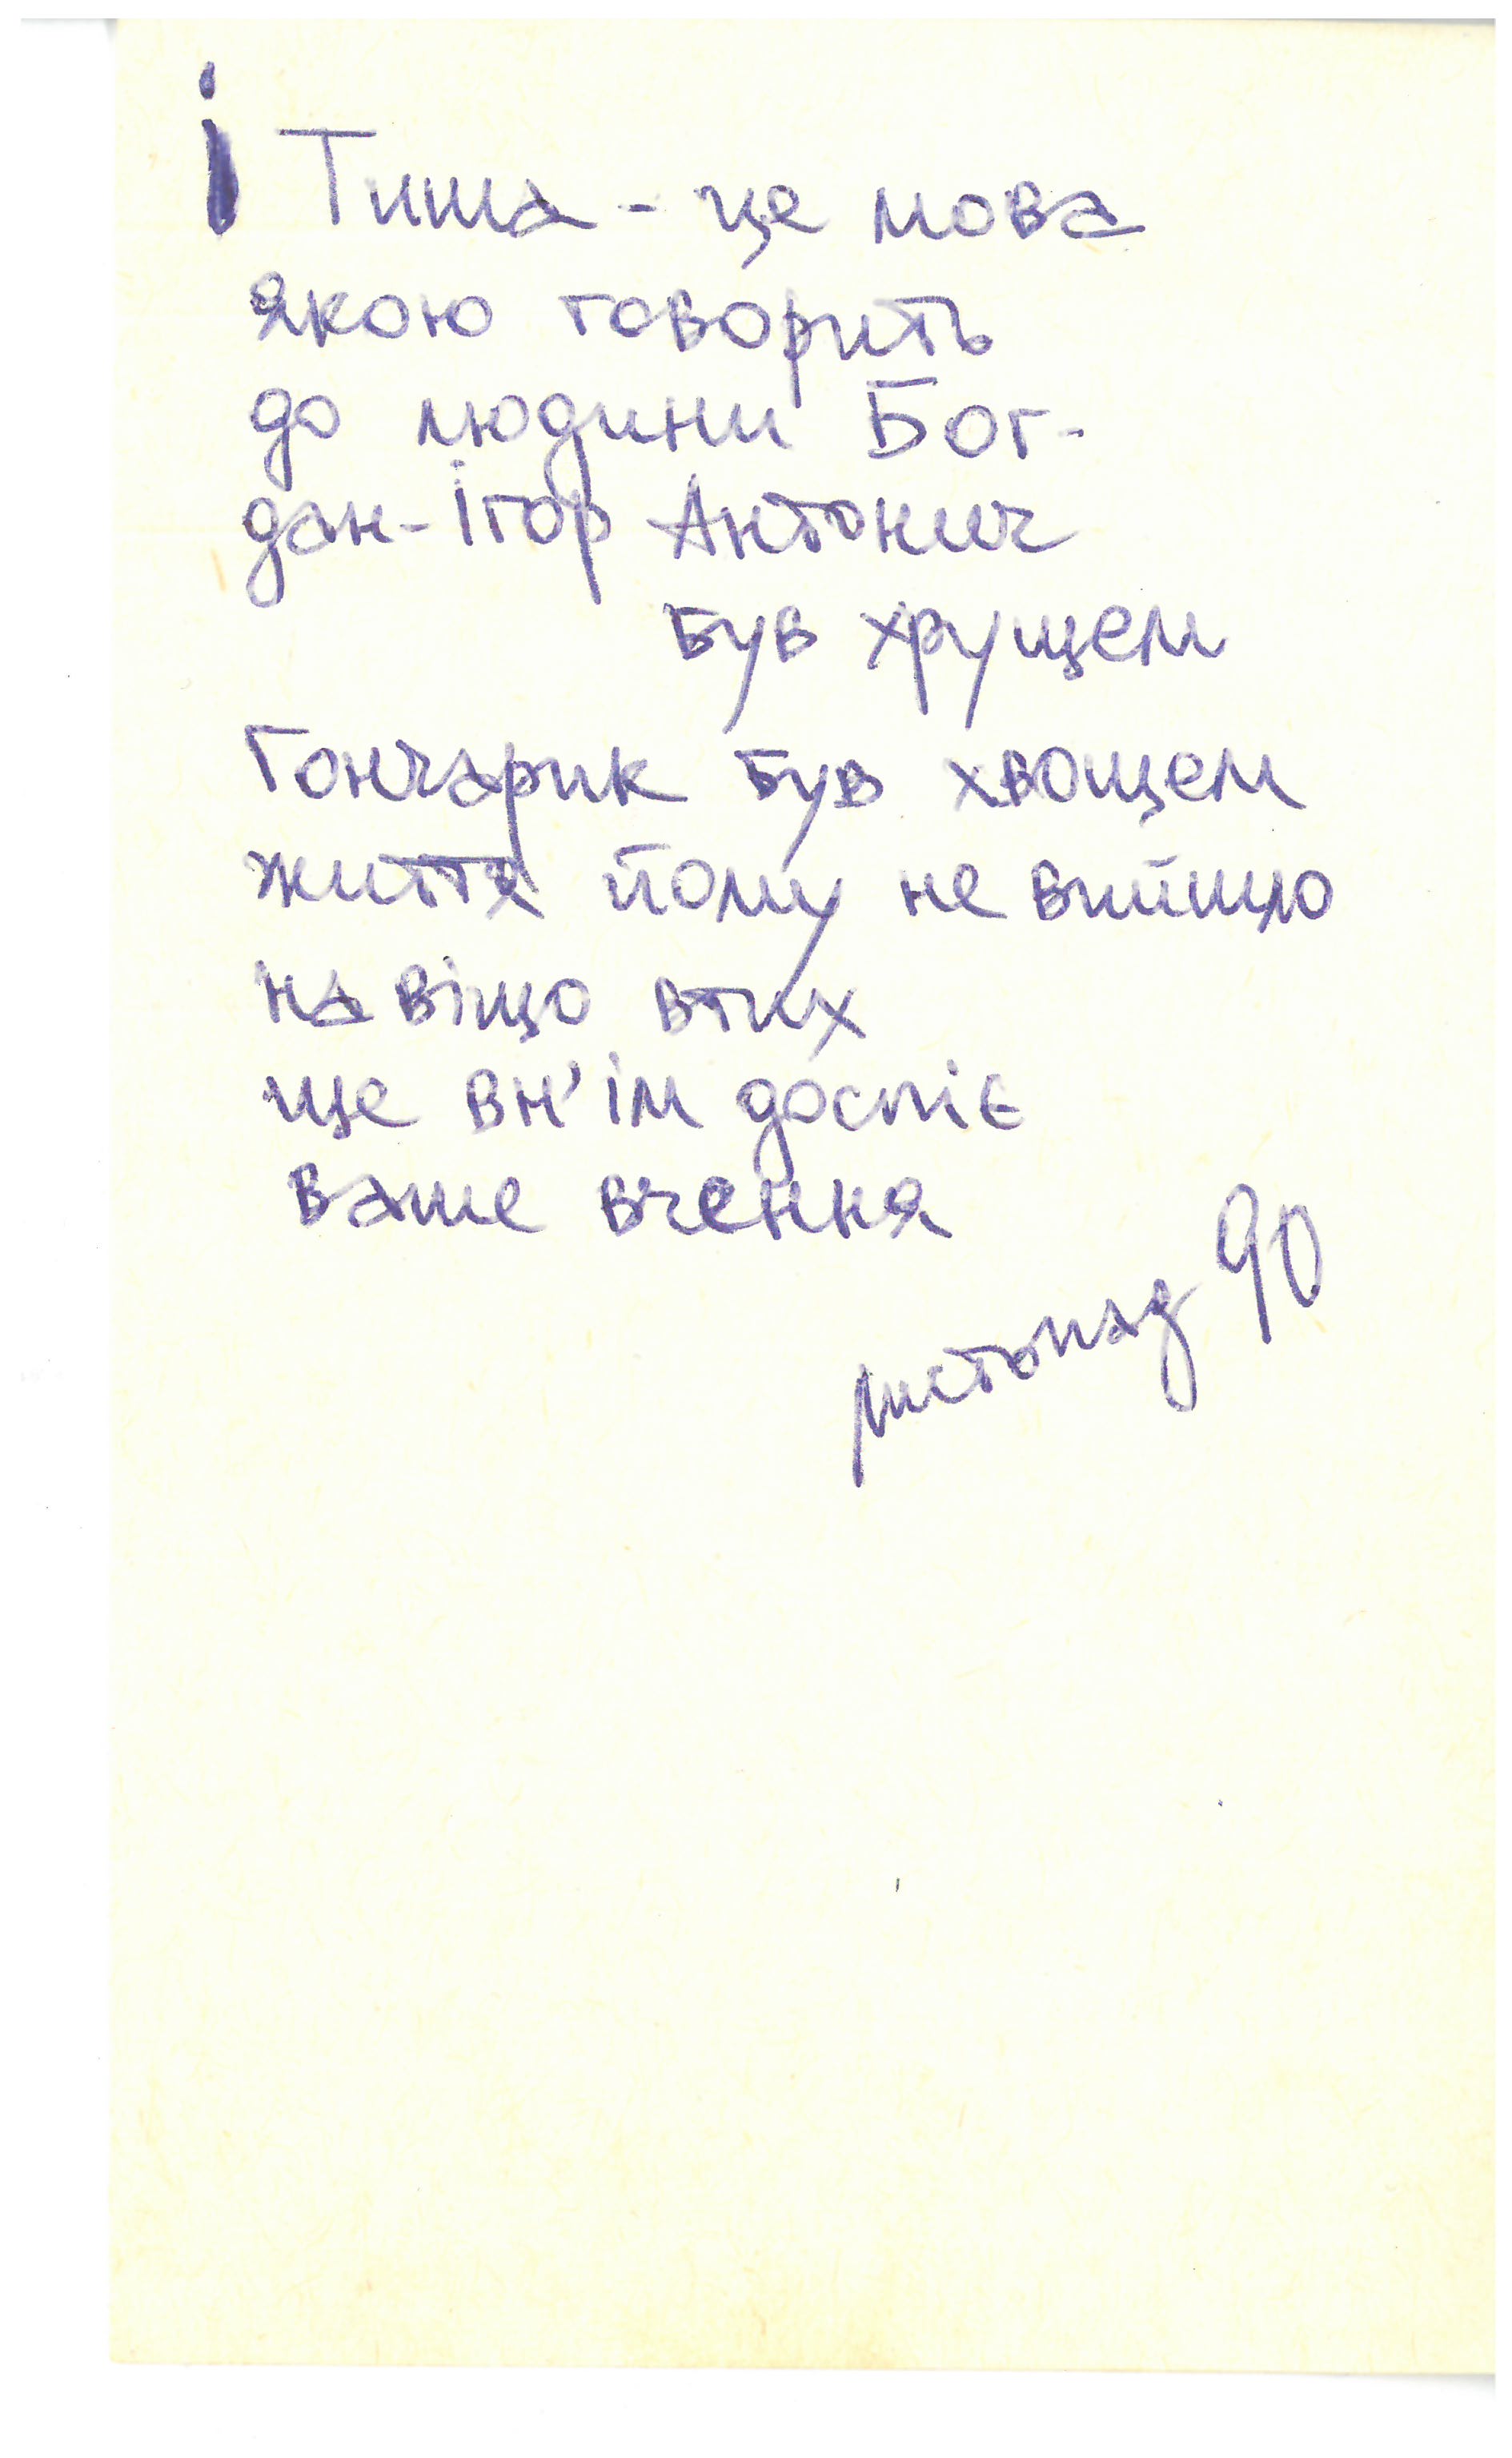 і Тиша - це мова
якою говорить
до людини Бог-
дан-Ігор Антонич
був хрущем
Гончарик був хвощем
життя йому не вийшло
на віщо втих
ще вн'ім доспіє
ваше вчення
листопад 90